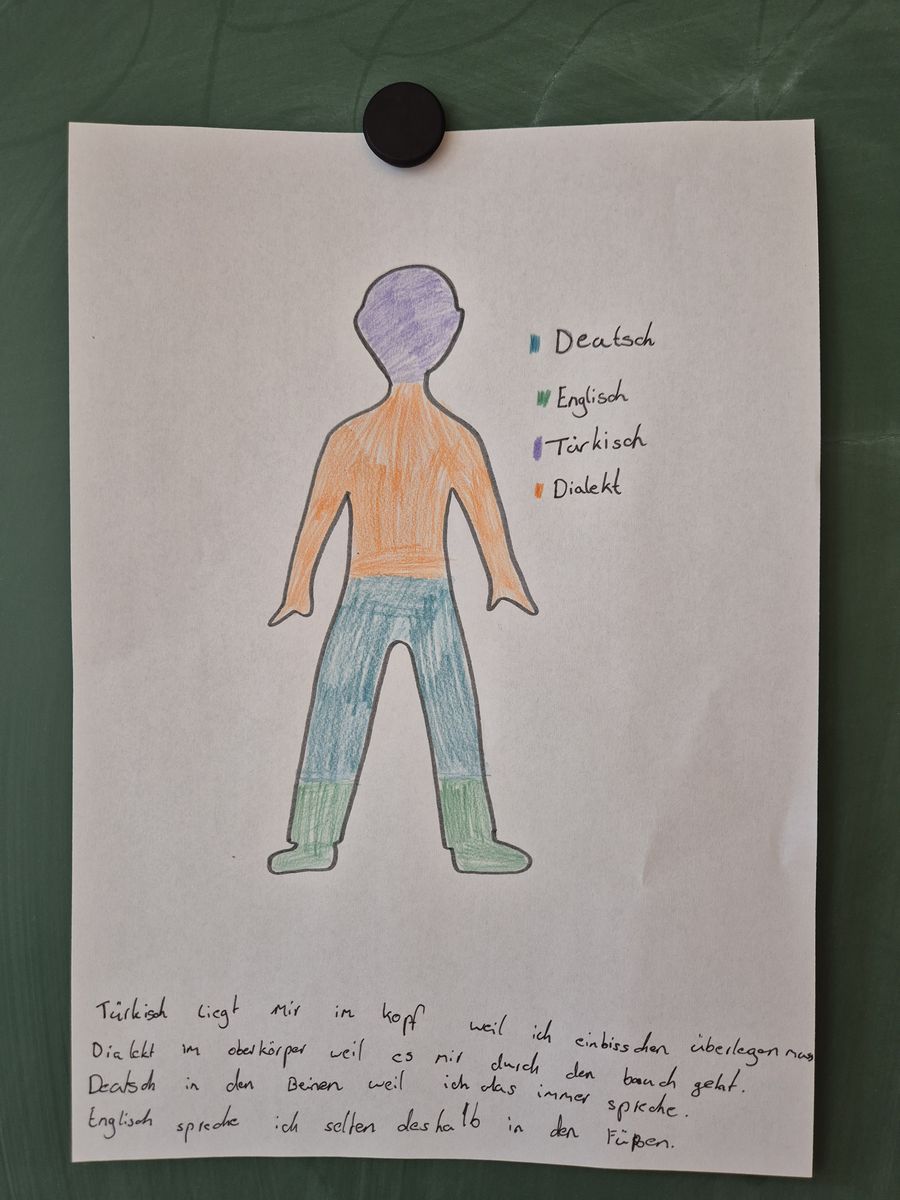 Deutsch
Englisch
Türkisch
Dialekt
Türkisch liegt mir im kopf weil ich einbisschen überlegen muss
Dialekt im oberkörper weil es mir durch den bauch geht.
Deutsch in den Beinen weil ich das immer spreche.
Englisch spreche ich selten deshalb in den Füßen.